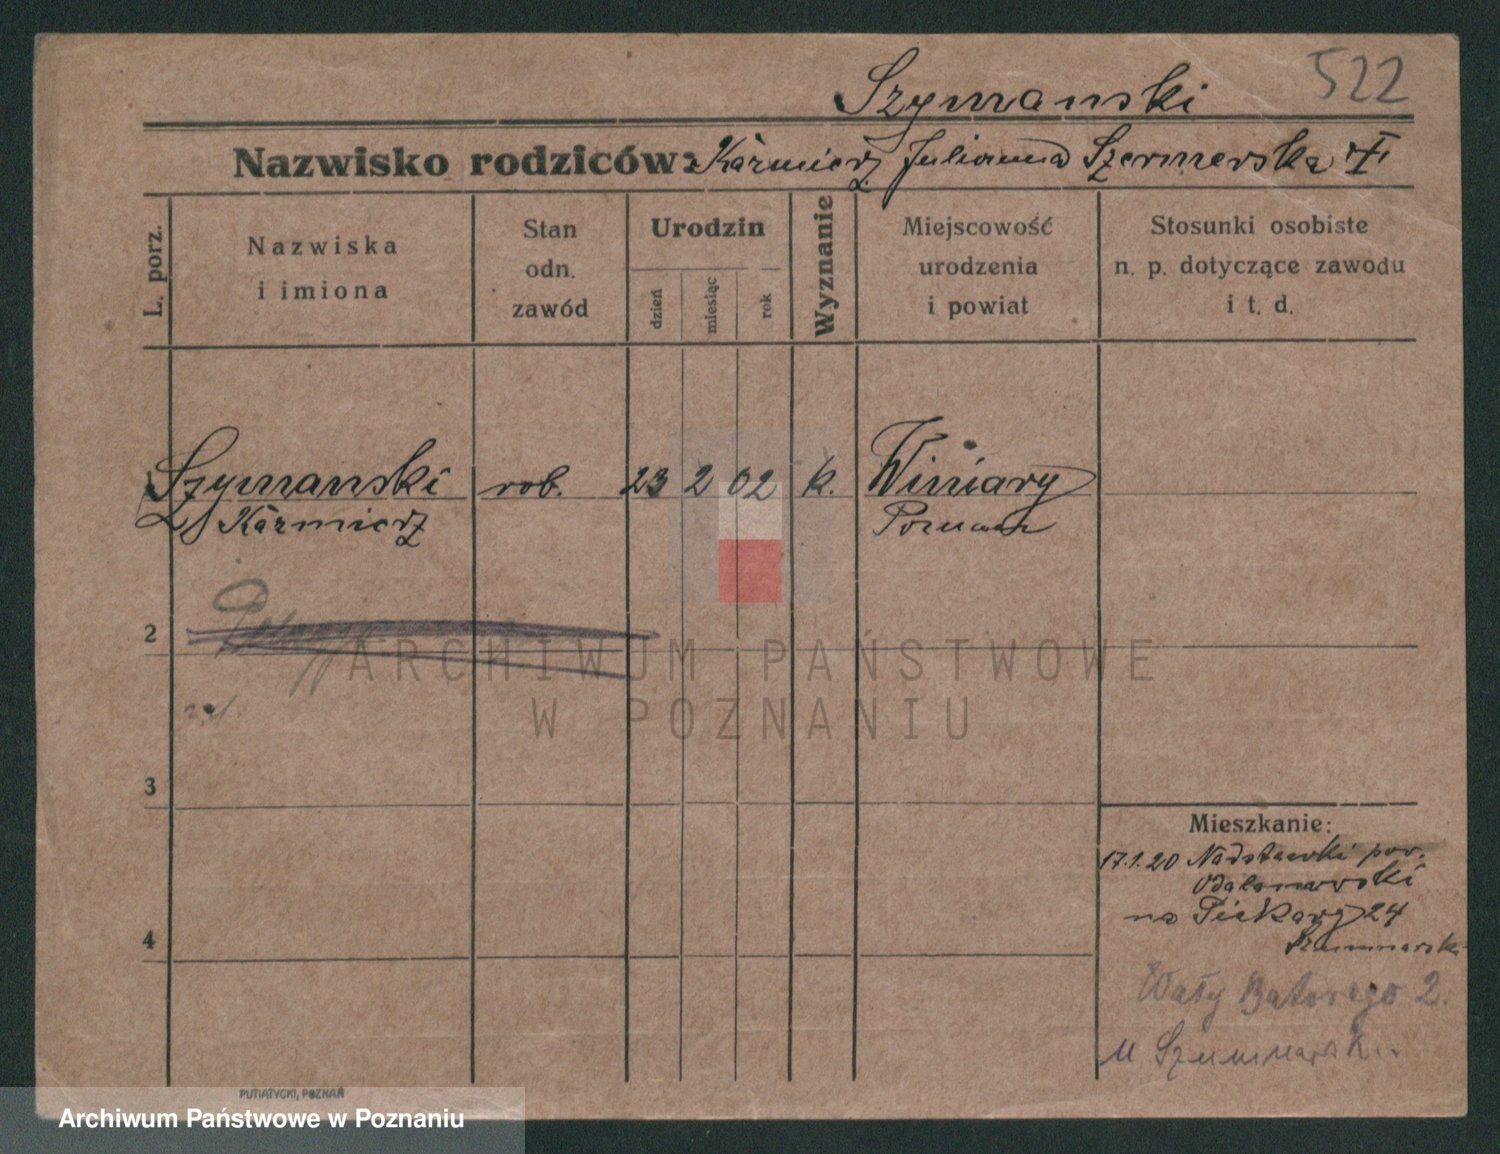 Szymanski 522
Nazwisko rodziców: Kazmierz Julianna
L. porz.
Nazwiska
i imiona
Stan
odn.
zawód
Urodzin
dzień
miesiąc
rok
Wyznanie
Miejscowość
urodzenia
i powiat
Stosunki osobiste
n. p. dotyczące zawodu
i t. d.
1 Szymanski rob. 23 2 02 k. Winiary
Kazmierz Poznan
2
3
4
Mieszkanie:
17.1.20 Nadstawki pow.
Odolanowski
na Piekary 24
Wały Batorego 2.
u
PUTIATYCKI, POZNAŃ
ARCHIWUM PAŃSTWOWE
W POZNANIU
Archiwum Państwowe w Poznaniu